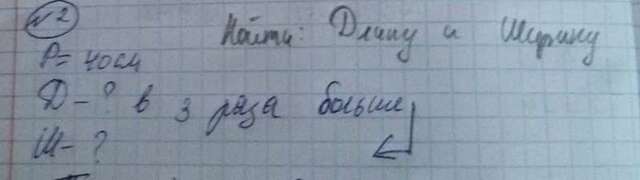 №2
Найти: Длину и Ширину
P= 40 см
Д - ? в 3 раза больше
Ш - ?